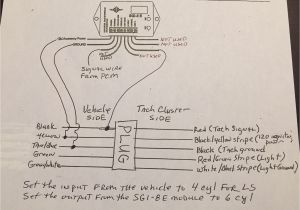 SGI-8E
Calibratory Power
GROUND
NOT USED
NOT USED
NOT USED
NOT USED
SIGNAL WIRE
FROM PCM
Vehicle
SIDE
Tach Cluster
SIDE
Black
Yellow
Tan/Blue
Green
Green/white
PLUG
Red (Tach Signal)
Black/yellow stripe (12V
Black (Tach ground)
Red/Green Stripe (Light)
White/Black Stripe (Light Ground)
Set the input from the vehicle to 4 cyl for LS
Set the output from the SGI-8E module to 6 cyl